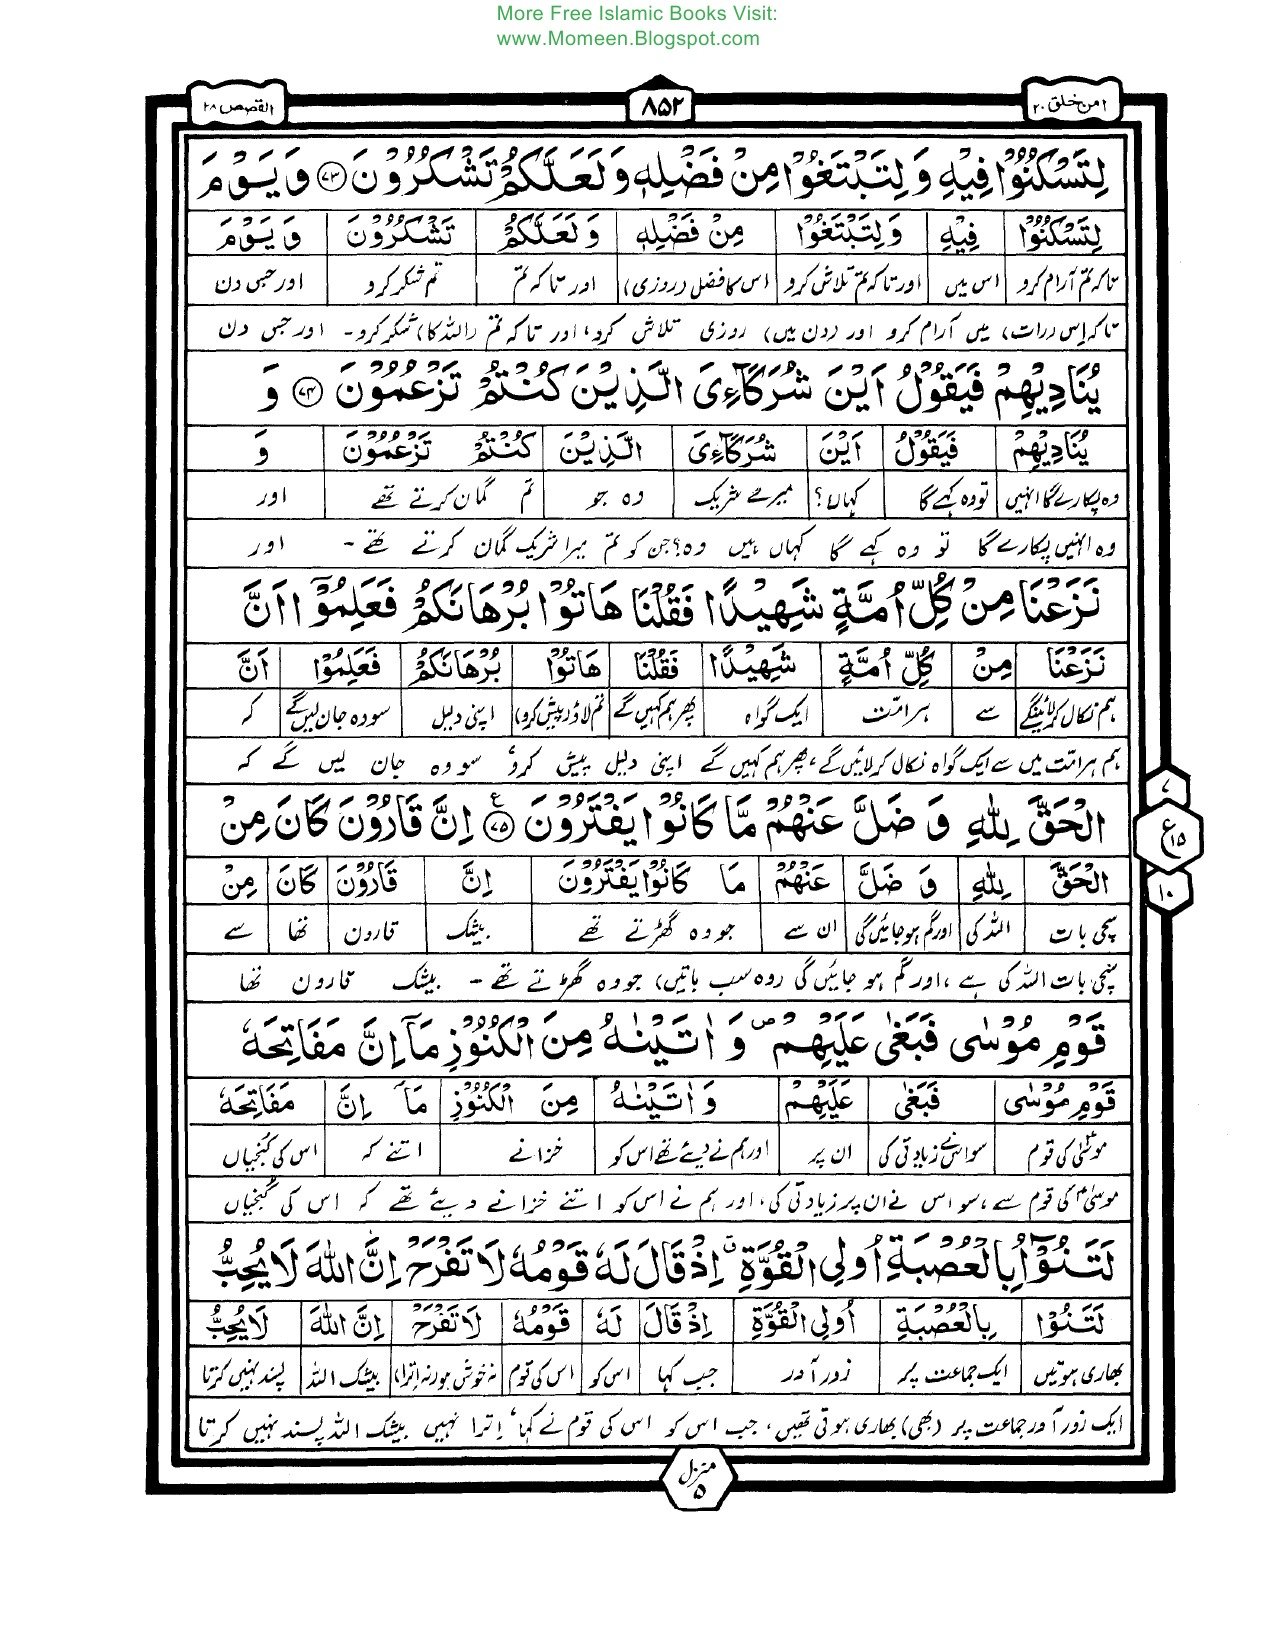 More Free Islamic Books Visit:
www.Momeen.Blogspot.com
امن خلق ۲۰ ۸۵۲ القصص ۲۸
لِتَسْكُنُوْا فِيْهِ وَ لِتَبْتَغُوْا مِنْ فَضْلِهٖ وَ لَعَلَّكُمْ تَشْكُرُوْنَ ﴿۷۳﴾ وَ يَوْمَ
لِتَسْكُنُوْا فِيْهِ وَ لِتَبْتَغُوْا مِنْ فَضْلِهٖ وَ لَعَلَّكُمْ تَشْكُرُوْنَ وَ يَوْمَ
تاکہ تم آرام کرو اس میں اور تاکہ تم تلاش کرو اس کا فضل (روزی) اور تاکہ تم تم شکر کرو اور جس دن
تاکہ اس (رات) میں آرام کرو اور (دن میں) روزی تلاش کرو، اور تاکہ تم (اللہ کا) شکر کرو۔ اور جس دن
يُنَادِيْهِمْ فَيَقُوْلُ اَيْنَ شُرَكَآءِىَ الَّذِيْنَ كُنْتُمْ تَزْعُمُوْنَ ﴿۷۴﴾ وَ
يُنَادِيْهِمْ فَيَقُوْلُ اَيْنَ شُرَكَآءِىَ الَّذِيْنَ كُنْتُمْ تَزْعُمُوْنَ وَ
وہ پکارے گا انہیں تو وہ کہے گا کہاں؟ میرے شریک وہ جو تم گمان کرتے تھے اور
وہ انہیں پکارے گا تو وہ کہے گا کہاں ہیں وہ؟ جن کو تم میرا شریک گمان کرتے تھے۔ اور
نَزَعْنَا مِنْ كُلِّ اُمَّةٍ شَهِيْدًا فَقُلْنَا هَاتُوْا بُرْهَانَكُمْ فَعَلِمُوْٓا اَنَّ
نَزَعْنَا مِنْ كُلِّ اُمَّةٍ شَهِيْدًا فَقُلْنَا هَاتُوْا بُرْهَانَكُمْ فَعَلِمُوْٓا اَنَّ
ہم نکال کر لائینگے سے ہر امّت ایک گواہ پھر ہم کہیں گے تم لاؤ (پیش کرو) اپنی دلیل سو وہ جان لیں گے کہ
ہم ہر امّت میں سے ایک گواہ نکال کر لائیں گے، پھر ہم کہیں گے اپنی دلیل پیش کرو، سو وہ جان لیں گے کہ
الْحَقَّ لِلّٰهِ وَ ضَلَّ عَنْهُمْ مَّا كَانُوْا يَفْتَرُوْنَ ﴿۷۵﴾ ع اِنَّ قَارُوْنَ كَانَ مِنْ
۷ ع ۱۵ ۱۰
الْحَقَّ لِلّٰهِ وَ ضَلَّ عَنْهُمْ مَا كَانُوْا يَفْتَرُوْنَ اِنَّ قَارُوْنَ كَانَ مِنْ
سچی بات اللہ کی اور گم ہو جائیں گی ان سے جو وہ گھڑتے تھے بیشک قارون تھا سے
سچی بات اللہ کی ہے، اور گم ہو جائیں گی (وہ سب باتیں) جو وہ گھڑتے تھے۔ بیشک قارون تھا
قَوْمِ مُوْسٰى فَبَغٰى عَلَيْهِمْ ۪ وَ اٰتَيْنٰهُ مِنَ الْكُنُوْزِ مَآ اِنَّ مَفَاتِحَهٗ
قَوْمِ مُوْسٰى فَبَغٰى عَلَيْهِمْ وَ اٰتَيْنٰهُ مِنَ الْكُنُوْزِ مَآ اِنَّ مَفَاتِحَهٗ
موسٰی کی قوم سو اس نے زیادتی کی ان پر اور ہم نے دیئے تھے اس کو خزانے اتنے کہ اس کی کنجیاں
موسیٰؑ کی قوم سے، سو اس نے ان پر زیادتی کی، اور ہم نے اس کو اتنے خزانے دیئے تھے کہ اس کی کنجیاں
لَتَنُوْٓاُ بِالْعُصْبَةِ اُولِى الْقُوَّةِ ۗ اِذْ قَالَ لَهٗ قَوْمُهٗ لَا تَفْرَحْ اِنَّ اللّٰهَ لَا يُحِبُّ
لَتَنُوْٓا بِالْعُصْبَةِ اُولِى الْقُوَّةِ اِذْ قَالَ لَهٗ قَوْمُهٗ لَا تَفْرَحْ اِنَّ اللّٰهَ لَا يُحِبُّ
بھاری ہوتیں ایک جماعت پر زور آور جب کہا اس کو اس کی قوم نہ خوش ہو (نہ اترا) بیشک اللہ پسند نہیں کرتا
ایک زور آور جماعت پر (بھی) بھاری ہوتی تھیں، جب اس کو اس کی قوم نے کہا، اترا نہیں بیشک اللہ پسند نہیں کرتا
منزل ۵